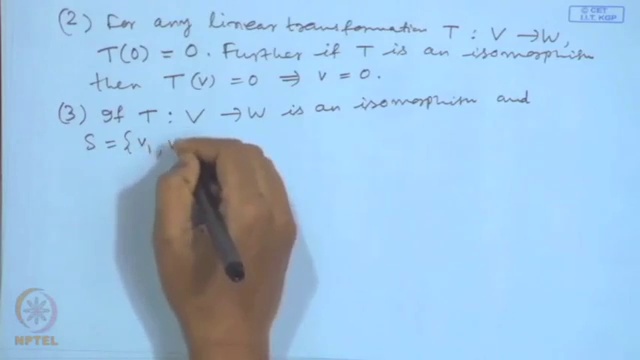 © CET
I.I.T. KGP
(2) For any linear transformation T : V → W,
T(0) = 0. Further if T is an isomorphism
then T(v) = 0 ⇒ v = 0.
(3) If T : V → W is an isomorphism and
S = {v₁, v
NPTEL